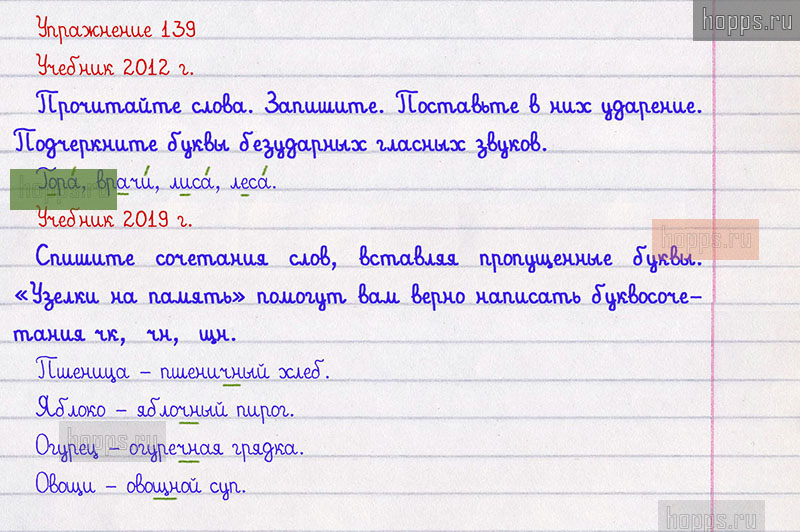 hopps.ru
Упражнение 139
Учебник 2012 г.
Прочитайте слова. Запишите. Поставьте в них ударение.
Подчеркните буквы безударных гласных звуков.
Гора́, врачи́, лиса́, леса́.
hopps.ru
Учебник 2019 г.
hopps.ru
Спишите сочетания слов, вставляя пропущенные буквы.
«Узелки на память» помогут вам верно написать буквосоче-
тания чк, чн, щн.
Пшеница – пшеничный хлеб.
Яблоко – яблочный пирог.
Огурец – огуречная грядка.
hopps.ru
Овощи – овощной суп.
hopps.ru